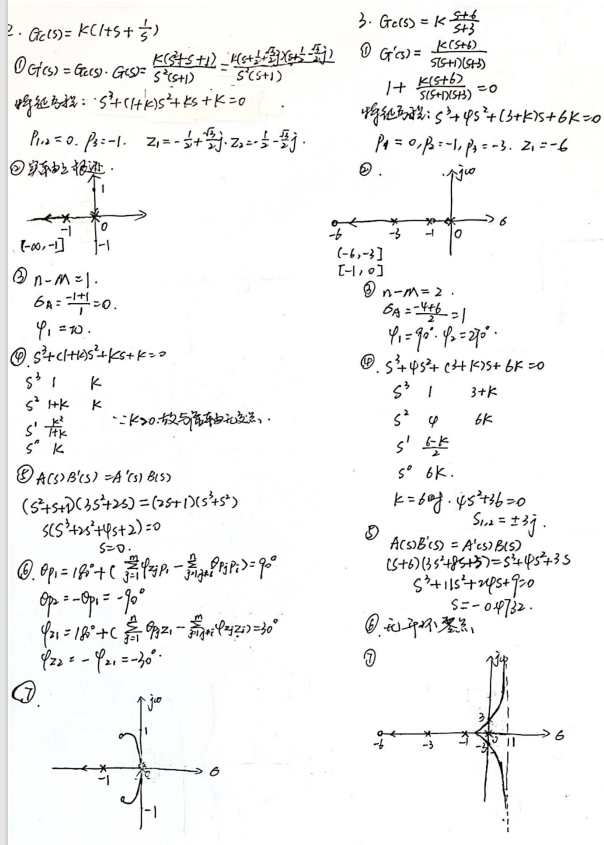 2. Gc(s) = K(1+s+1/s)
① G(s) = Gc(s)·G(s) = K(s²+s+1)/s²(s+1) = K(s+1/2+√3/2j)(s+1/2-√3/2j)/s²(s+1)
特征方程: s³+(1+K)s²+Ks+K=0
P1,2=0. P3=-1. Z1=-1/2+√3/2j. Z2=-1/2-√3/2j.
② 实轴上根迹.
1
-1 0
[-∞,-1] -1
③ n-m=1.
σA=(-1+1)/1=0.
φ1=π.
④. s³+(1+K)s²+Ks+K=0
s³ 1 K
s² 1+K K
s¹ K²/1+K ∵K>0.故与虚轴无交点.
s⁰ K
⑤ A(s)B'(s)=A'(s)B(s)
(s²+s+1)(3s²+2s)=(2s+1)(s³+s²)
s(s³+2s²+4s+2)=0
s=0.
⑥. θp1=180°+(∑φzjp1-∑θpjp1)=90°
θp2=-θp1=-90°
φz1=180°+(∑θpjz1-∑φzjz1)=30°
φz2=-φz1=-30°.
⑦.
jω
1
-1 σ
-1
3. Gc(s)=K s+6/s+3
① G(s)=K(s+6)/s(s+1)(s+3)
1+K(s+6)/s(s+1)(s+3)=0
特征方程: s³+4s²+(3+K)s+6K=0
P1=0, P2=-1, P3=-3. Z1=-6
②.
jω
-6 -3 -1 0 σ
(-6,-3]
[-1,0]
③ n-m=2.
σA=(-4+6)/2=1
φ1=90°. φ2=270°.
④. s³+4s²+(3+K)s+6K=0
s³ 1 3+K
s² 4 6K
s¹ 6-K/2
s⁰ 6K.
K=6时. 4s²+36=0
s1,2=±3j.
⑤ A(s)B'(s)=A'(s)B(s)
(s+6)(3s²+8s+3)=s³+4s²+3s
s³+11s²+24s+9=0
s=-0.4732.
⑥.
⑦
jω
3
-6 -3 -1 0 1 σ
-3